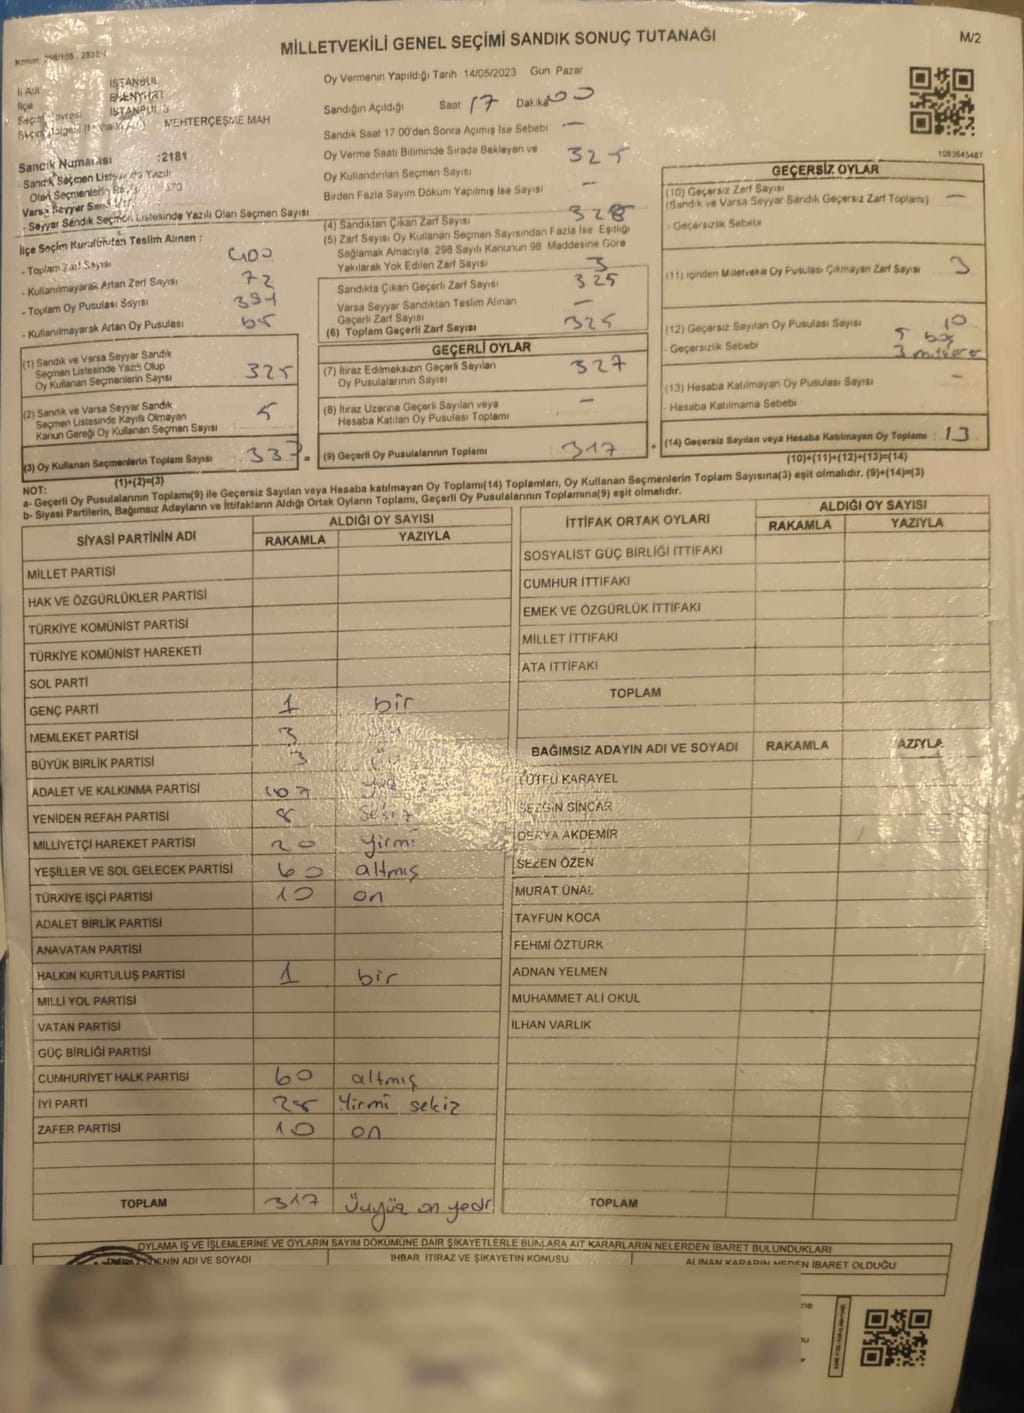 MİLLETVEKİLİ GENEL SEÇİMİ SANDIK SONUÇ TUTANAĞI
M/2
İl Adı İSTANBUL
İlçe ESENYURT
İSTANBUL 3
MEHTERÇEŞME MAH
Sandık Numarası :2181
- Sandık Seçmen Listesinde Yazılı
Olan Seçmenlerin
- Seyyar Sandık Seçmen Listesinde Yazılı Olan Seçmen Sayısı
İlçe Seçim Kurulundan Teslim Alınan :
- Toplam Zarf Sayısı 400
- Kullanılmayarak Artan Zarf Sayısı 72
- Toplam Oy Pusulası Sayısı
- Kullanılmayarak Artan Oy Pusulası
(1) Sandık ve Varsa Seyyar Sandık
Seçmen Listesinde Yazılı Olup
Oy Kullanan Seçmenlerin Sayısı 325
(2) Sandık ve Varsa Seyyar Sandık
Seçmen Listesinde Kayıtlı Olmayan
Kanun Gereği Oy Kullanan Seçmen Sayısı 5
(3) Oy Kullanan Seçmenlerin Toplam Sayısı :
(1)+(2)=(3)
Oy Vermenin Yapıldığı Tarih 14/05/2023 Gun Pazar
Sandığın Açıldığı Saat 17 Dakika 00
Sandık Saat 17 00'den Sonra Açımış İse Sebebi —
Oy Verme Saati Bitiminde Sırada Bekleyen ve
Oy Kullandırılan Seçmen Sayısı 325
Birden Fazla Sayım Döküm Yapılmış İse Sayısı —
(4) Sandıktan Çıkan Zarf Sayısı 328
(5) Zarf Sayısı Oy Kullanan Seçmen Sayısından Fazla İse Eşitliği
Sağlamak Amacıyla, 298 Sayılı Kanunun 98. Maddesine Göre
Yakılarak Yok Edilen Zarf Sayısı 3
Sandıkta Çıkan Geçerli Zarf Sayısı 325
Varsa Seyyar Sandıktan Teslim Alınan
Geçerli Zarf Sayısı —
(6) Toplam Geçerli Zarf Sayısı 325
GEÇERLİ OYLAR
(7) İtiraz Edilmeksizin Geçerli Sayılan
Oy Pusulalarının Sayısı 327
(8) İtiraz Üzerine Geçerli Sayılan veya
Hesaba Katılan Oy Pusulası Toplamı —
(9) Geçerli Oy Pusulalarının Toplamı : 317
1083645487
GEÇERSİZ OYLAR
(10) Geçersiz Zarf Sayısı
(Sandık ve Varsa Seyyar Sandık Geçersiz Zarf Toplamı) —
- Geçersizlik Sebebi
(11) İçinden Milletvekili Oy Pusulası Çıkmayan Zarf Sayısı 3
(12) Geçersiz Sayılan Oy Pusulası Sayısı 10
- Geçersizlik Sebebi 5 boş
(13) Hesaba Katılmayan Oy Pusulası Sayısı —
- Hesaba Katılmama Sebebi
(14) Geçersiz Sayılan veya Hesaba Katılmayan Oy Toplamı : 13
(10)+(11)+(12)+(13)=(14)
NOT:
a- Geçerli Oy Pusulalarının Toplamı(9) ile Geçersiz Sayılan veya Hesaba katılmayan Oy Toplamı(14) Toplamları, Oy Kullanan Seçmenlerin Toplam Sayısına(3) eşit olmalıdır. (9)+(14)=(3)
b- Siyasi Partilerin, Bağımsız Adayların ve İttifakların Aldığı Ortak Oyların Toplamı, Geçerli Oy Pusulalarının Toplamına(9) eşit olmalıdır.
SİYASİ PARTİNİN ADI ALDIĞI OY SAYISI
RAKAMLA YAZIYLA
MİLLET PARTİSİ
HAK VE ÖZGÜRLÜKLER PARTİSİ
TÜRKİYE KOMÜNİST PARTİSİ
TÜRKİYE KOMÜNİST HAREKETİ
SOL PARTİ
GENÇ PARTİ 1 bir
MEMLEKET PARTİSİ 3
BÜYÜK BİRLİK PARTİSİ 3
ADALET VE KALKINMA PARTİSİ 107
YENİDEN REFAH PARTİSİ 8 sekiz
MİLLİYETÇİ HAREKET PARTİSİ 20 yirmi
YEŞİLLER VE SOL GELECEK PARTİSİ 60 altmış
TÜRKİYE İŞÇİ PARTİSİ 10 on
ADALET BİRLİK PARTİSİ
ANAVATAN PARTİSİ
HALKIN KURTULUŞ PARTİSİ 1 bir
MİLLİ YOL PARTİSİ
VATAN PARTİSİ
GÜÇ BİRLİĞİ PARTİSİ
CUMHURİYET HALK PARTİSİ 60 altmış
İYİ PARTİ 28 Yirmi sekiz
ZAFER PARTİSİ 10 on
TOPLAM 317 Üçyüz on yedi
İTTİFAK ORTAK OYLARI ALDIĞI OY SAYISI
RAKAMLA YAZIYLA
SOSYALİST GÜÇ BİRLİĞİ İTTİFAKI
CUMHUR İTTİFAKI
EMEK VE ÖZGÜRLÜK İTTİFAKI
MİLLET İTTİFAKI
ATA İTTİFAKI
TOPLAM
BAĞIMSIZ ADAYIN ADI VE SOYADI RAKAMLA YAZIYLA
LÜTFÜ KARAYEL
SEZGİN SİNCAR
DERYA AKDEMİR
SEZEN ÖZEN
MURAT ÜNAL
TAYFUN KOCA
FEHMİ ÖZTÜRK
ADNAN YELMEN
MUHAMMET ALİ OKUL
İLHAN VARLIK
TOPLAM
OYLAMA İŞ VE İŞLEMLERİNE VE OYLARIN SAYIM DÖKÜMÜNE DAİR ŞİKAYETLERLE BUNLARA AİT KARARLARIN NELERDEN İBARET BULUNDUKLARI
ADI VE SOYADI İHBAR, İTİRAZ VE ŞİKAYETİN KONUSU ALINAN KARARIN NEDEN İBARET OLDUĞU